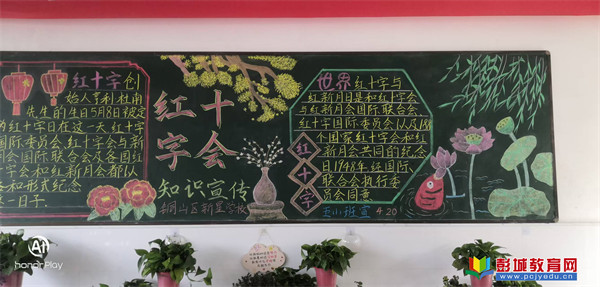 红十字创
始人亨利杜南
先生的生日5月8日被定
的红十字日在这一天红十字
国际委员会红十字会与新
月会国际联合会及各国红
十字会和红新月会都以
各和形式纪念
这一日子.
红十字会
知识宣传
铜山区新星学校
世界红十字与
红新月日是和红十字会
与红新月会国际联合会、
红十字国际委员会以及18
个国家红十字会和红
新月会共同的纪念
日1948年经国际
联合会执行委
员会同意
红十字
五小班宣 4.20
honor Play
彭城教育网
www.pcjyedu.cn